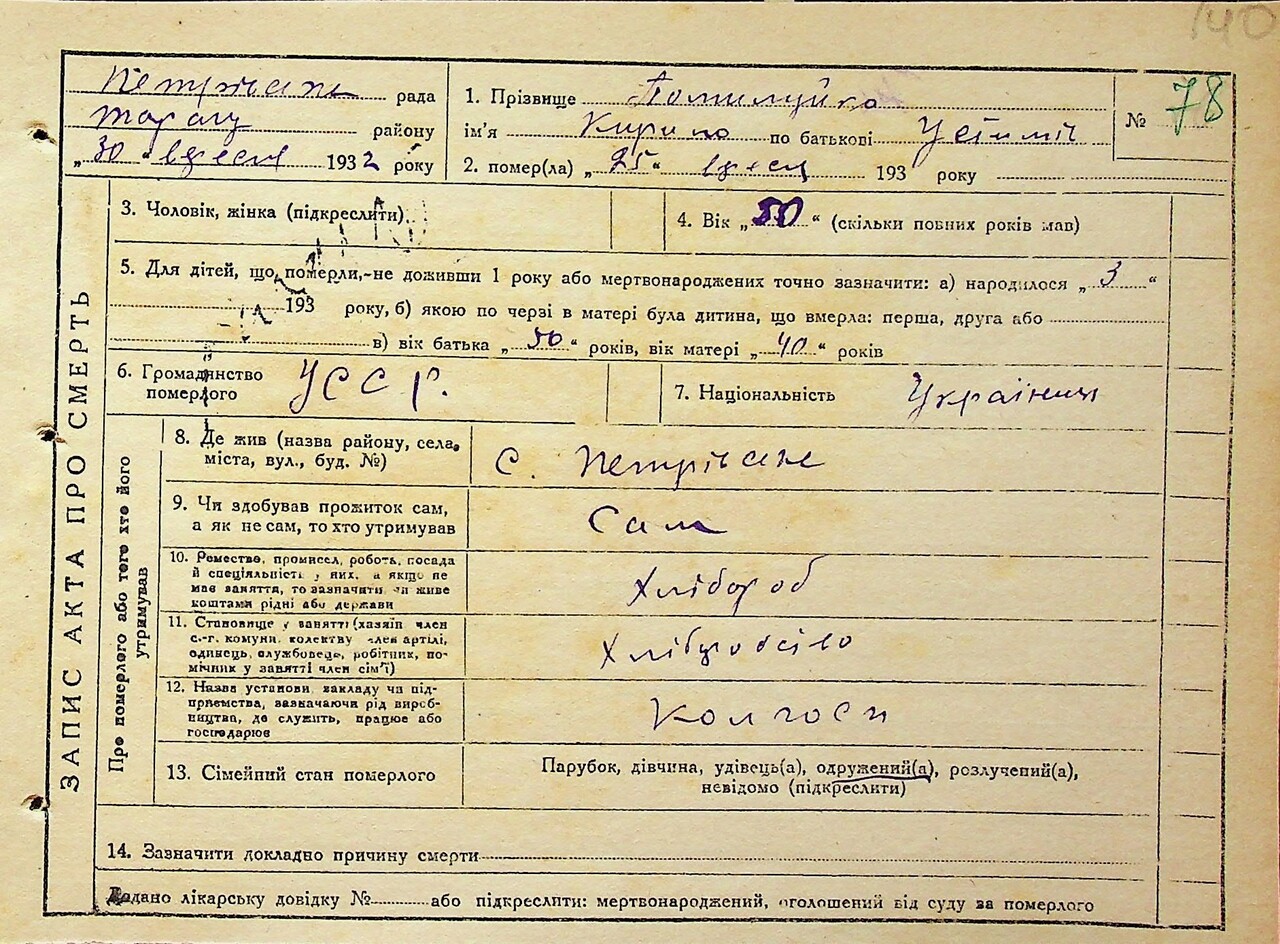 140
Петрівська рада
району
„30“ вересня 1932 року
1. Прізвище Помилуйко
ім'я Кирило по батькові
2. помер(ла) „25“ вересня 193 року
№ 78
ЗАПИС АКТА ПРО СМЕРТЬ
3. Чоловік, жінка (підкреслити)
4. Вік „50“ (скільки повних років мав)
5. Для дітей, що померли, не доживши 1 року або мертвонароджених точно зазначити: а) народилося „3“
193 року, б) якою по черзі в матері була дитина, що вмерла: перша, друга або
в) вік батька „50“ років, вік матері „40“ років
6. Громадянство померлого УССР.
7. Національність Українець
Про померлого або того хто його утримував
8. Де жив (назва району, села,
міста, вул., буд. №)
с. Петрівське
9. Чи здобував прожиток сам,
а як не сам, то хто утримував
Сам
10. Ремество, промисел, робота, посада
й спеціальність у них, а якщо не
має заняття, то зазначити чи живе
коштами рідні або держави
Хлібороб
11. Становище у занятті (хазяїн член
с.-г. комуни, колективу член артілі,
одинець, службовець, робітник, по-
мічник у занятті член сім'ї)
12. Назва установи, закладу чи під-
приємства, зазначаючи рід вироб-
ництва, де служить, працює або
господарює
Колгосп
13. Сімейний стан померлого
Парубок, дівчина, удівець(а), одружений(а), розлучений(а),
невідомо (підкреслити)
14. Зазначити докладно причину смерти
Додано лікарську довідку № або підкреслити: мертвонароджений, оголошений від суду за померлого